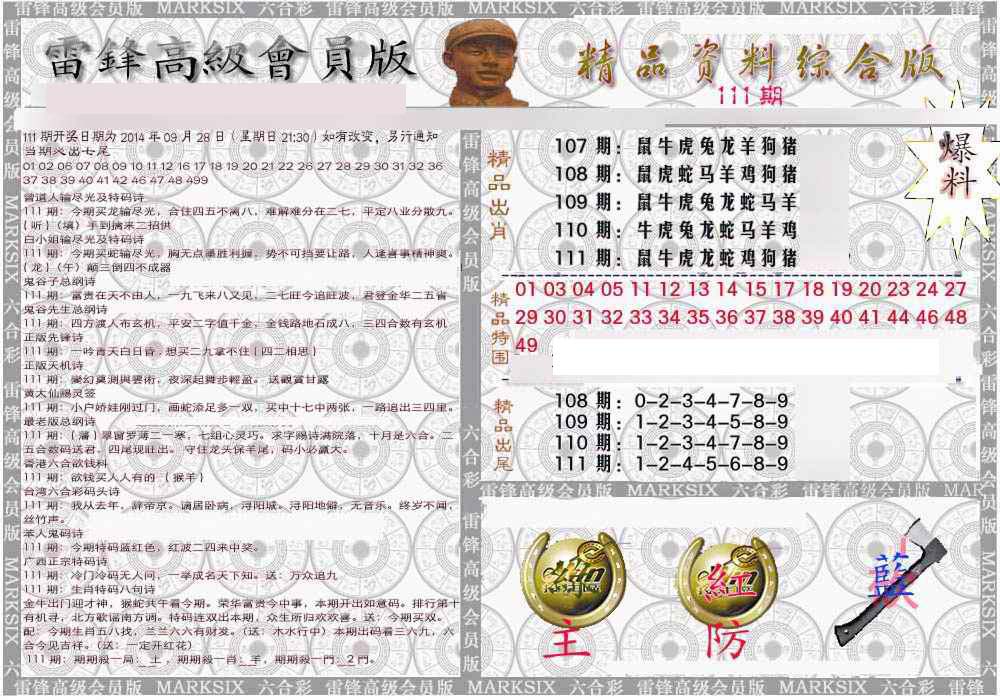 雷锋高级会员版 MARKSIX 六合彩 雷锋高级会员版 MARKSIX 六合彩 雷锋高级会员版 MARKSIX 六合彩
雷鋒高級會員版
精品资料综合版
111期
111期开奖日期为2014年09月28日（星期日21:30）如有改变，另行通知
01 02 06 07 08 09 10 11 12 16 17 18 19 20 21 22 26 27 28 29 30 31 32 36
37 38 39 40 41 42 46 47 48 499
曾道人输尽光及特码诗
111期：今期买龙输尽光，合住四五不离八，难解难分在二七，平定八业分散九。
白小姐输尽光及特码诗
111期：今期买蛇输尽光，胸无点墨胜利握，势不可挡要让路，人逢喜事精神爽。
{龙}（午）颠三倒四不成器
鬼谷子总纲诗
111期：富贵在天不由人，一九飞来八又见，二七旺今追旺波，君登金华二五省
鬼谷先生总纲诗
111期：四方渡人布玄机，平安二字值千金，金钱路地石成八，三四合数有玄机
正版先锋诗
111期：一吟青天白日昏，想买二九拿不住{四二相思}
正版天机诗
111期：變幻莫測與雲術，夜深起舞步輕盈。送觀賞甘露
黄大仙赐灵签
111期：小户娇娃刚过门，画蛇添足多一双，买中十七中两张，一路追出三四里。
最老版总纲诗
111期：{藩}翠窗罗薄二一寒，七组心灵巧。求字赐诗满院落，十月是六合。二
五合数码送君。四尾现旺出。守住龙头保羊尾，码小必赢大。
香港六合欲钱料
111期：欲钱买人人有的（猴羊）
台湾六合彩码头诗
111期：我从去年，辞帝京。谪居卧病，浔阳城。浔阳地僻，无音乐。终岁不闻，
丝竹声。
笨人鬼码诗
111期：今期特码蓝红色，红波二四来中奖。
广西正宗特码诗
111期：冷门冷码无人问，一举成名天下知。送：万众追九
111期：生肖特码八句诗
金牛出门迎才神，猴蛇共午看今期。荣华富贵今中事，本期开出如意码。排行第十
有机寻，北方歌谣南方调。特码连双出本期，众生所归欢欢喜。送：今期买双。
配：今期生肖五八找，兰兰六六有财发。（送：木水行中）本期出码看三六九，六
合今见吉祥。（送：一定开红花）
111期：期期殺一局：土，期期殺一肖：羊，期期殺一門：2門。
精品出肖
107期：鼠牛虎兔龙羊狗猪
108期：鼠虎蛇马羊鸡狗猪
109期：鼠牛虎兔龙蛇马羊
110期：牛虎兔龙蛇马羊鸡
111期：鼠牛虎龙蛇鸡狗猪
爆料
精品特围
01 03 04 05 11 12 13 14 15 17 18 19 20 23 24 27
29 30 31 32 33 34 35 36 37 38 39 40 41 44 46 48
49
精品出尾
108期：0-2-3-4-7-8-9
109期：1-2-3-4-5-8-9
110期：0-2-3-4-7-8-9
111期：1-2-4-5-6-8-9
雷锋高级会员版 MARKSIX 六合彩 雷锋高级会员版 MAR
主
紅
防
藍
雷锋高级会员版 MARKSIX 六合彩 雷锋高级会员版 MARKSIX 六合彩 雷锋高级会员版